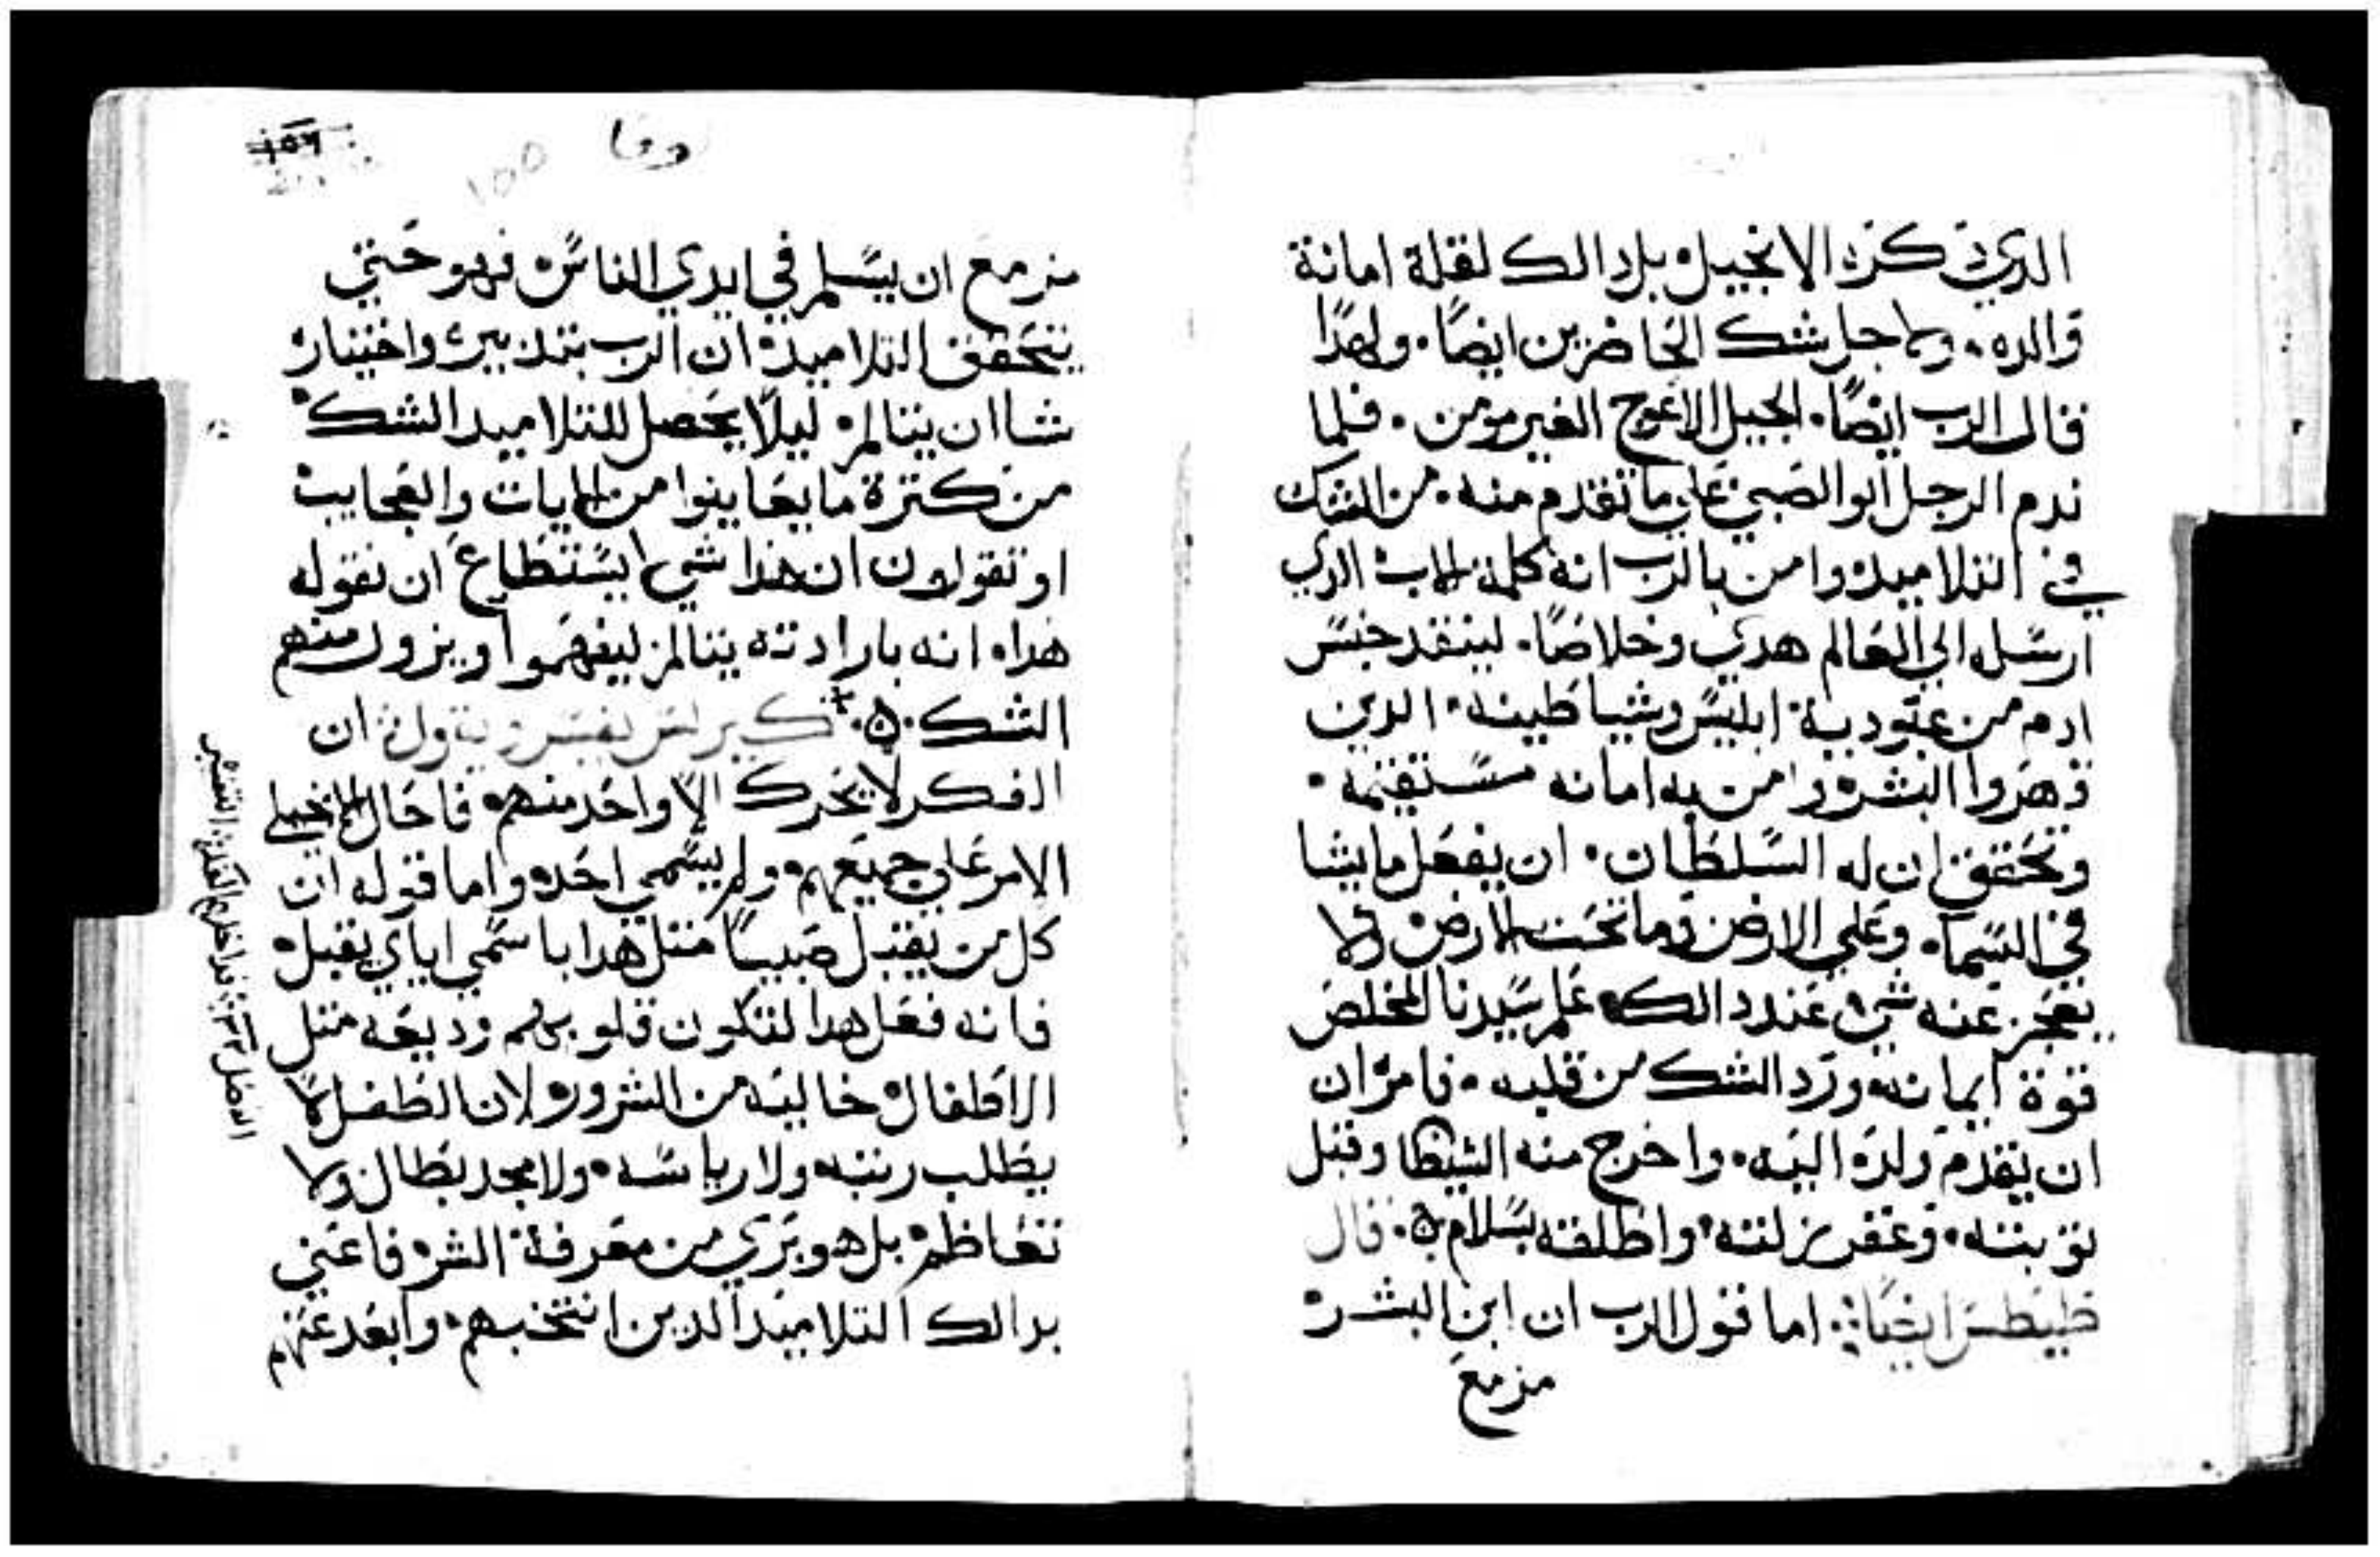 الدي دكره الانجيل بل دالك لقلة امانة
والده ولاجل شك الحاضرين ايضًا ولهدا
قال الرب ايضًا الجيل الاعوج الغير مومن فلما
ندم الرجل ابو الصبي علي ما تقدم منه من الشك
في التلاميد وامن بالرب انه كلمة الاب الدي
ارسله الي العالم هدي وخلاصًا لينقد جنس
ادم من عبودية ابليس وشياطينه الدين
قهروا البشر وامن به امانه مستقيمه
وتحقق ان له السلطان ان يفعل ما يشا
في السما وعلي الارض وما تحت الارض ولا
يعجز عنه شي عند دالك علم سيدنا المخلص
قوة ايمانه ورد الشك من قلبه فامر ان
ان يقدم ولده اليه واخرج منه الشيطا وقبل
توبته وغفر زلته واطلقه بسلام قال
طيطس ايضًا اما قول الرب ان ابن البشر
مزمع
١٥٦
لوقا
١٥٥
مزمع ان يسلم في ايدي الناس فهو حتي
يتحقق التلاميد ان الرب بتدبيره واختياره
شا ان يتالم ليلا يحصل للتلاميد الشك
من كترة ما يعاينوا من الايات والعجايب
او تقولون ان هدا شي يستطاع ان نقوله
هدا انه بارادته يتالم ليفهموا ويزول منهم
الشك كيرلس يفسر ويقول ان
الفكر لا يتحرك الا واحد منهم فاحال الانجيلي
الامر علي جميعهم ولم يسمي احد واما قوله ان
كل من يقبل صبيًا متل هدا باسمي اياي يقبل
فانه فعل هدا لتكون قلوبهم وديعه متل
الاطفال خاليه من الشرور لان الطفل لا
يطلب رتبه ولا رياسه ولا مجد بطال ولا
تعاظم بل هو بري من معرفة الشر فاعني
بدالك التلاميد الدين انتخبهم وابعد عنهم